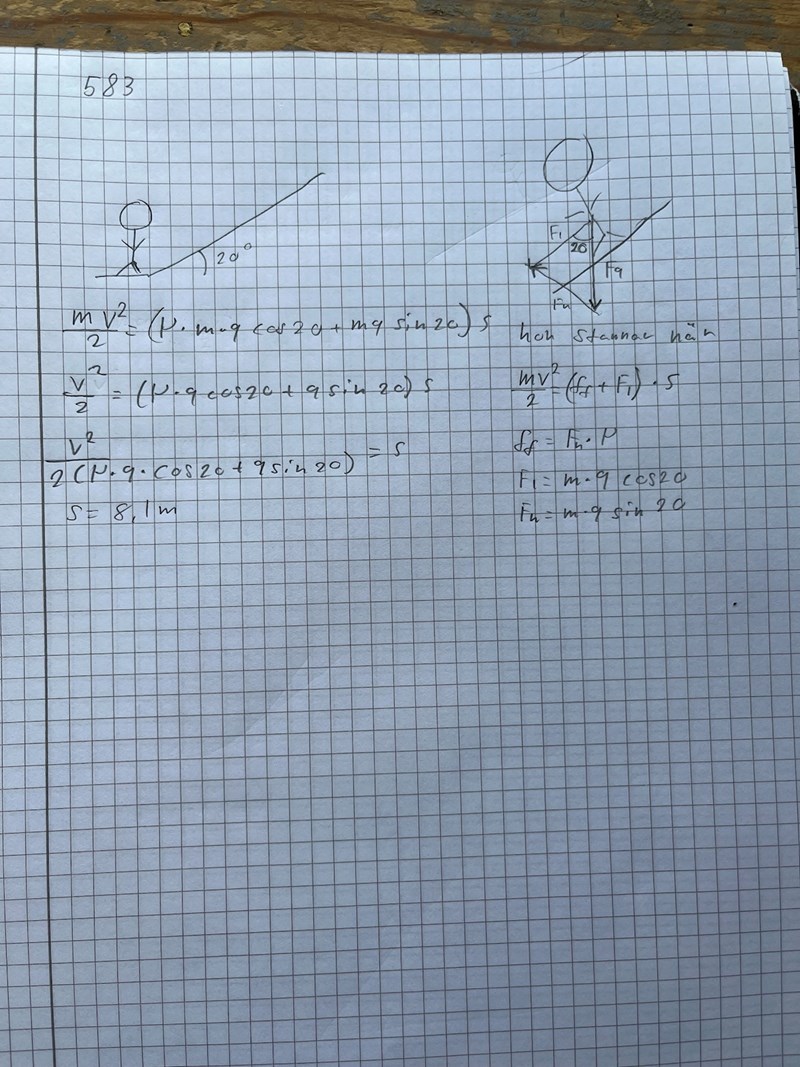 583
20°
F₁
20
Fg
Fn
mv²/2 = (μ·m·g cos20 + mg sin20) s
v²/2 = (μ·g cos20 + g sin20) s
v²/2(μ·g·cos20 + g sin20) = s
s = 8,1m
hon stannar när
mv²/2 = (ff + F₁)·s
ff = Fn·μ
F₁ = m·g cos20
Fn = m·g sin20